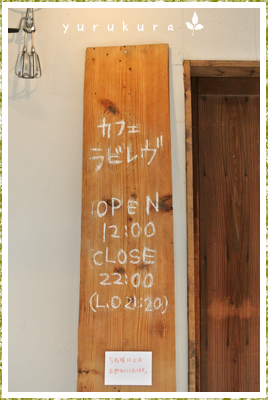 yurukura
カフェ
ラビレヴ
OPEN
12:00
CLOSE
22:00
(L.O 21:20)